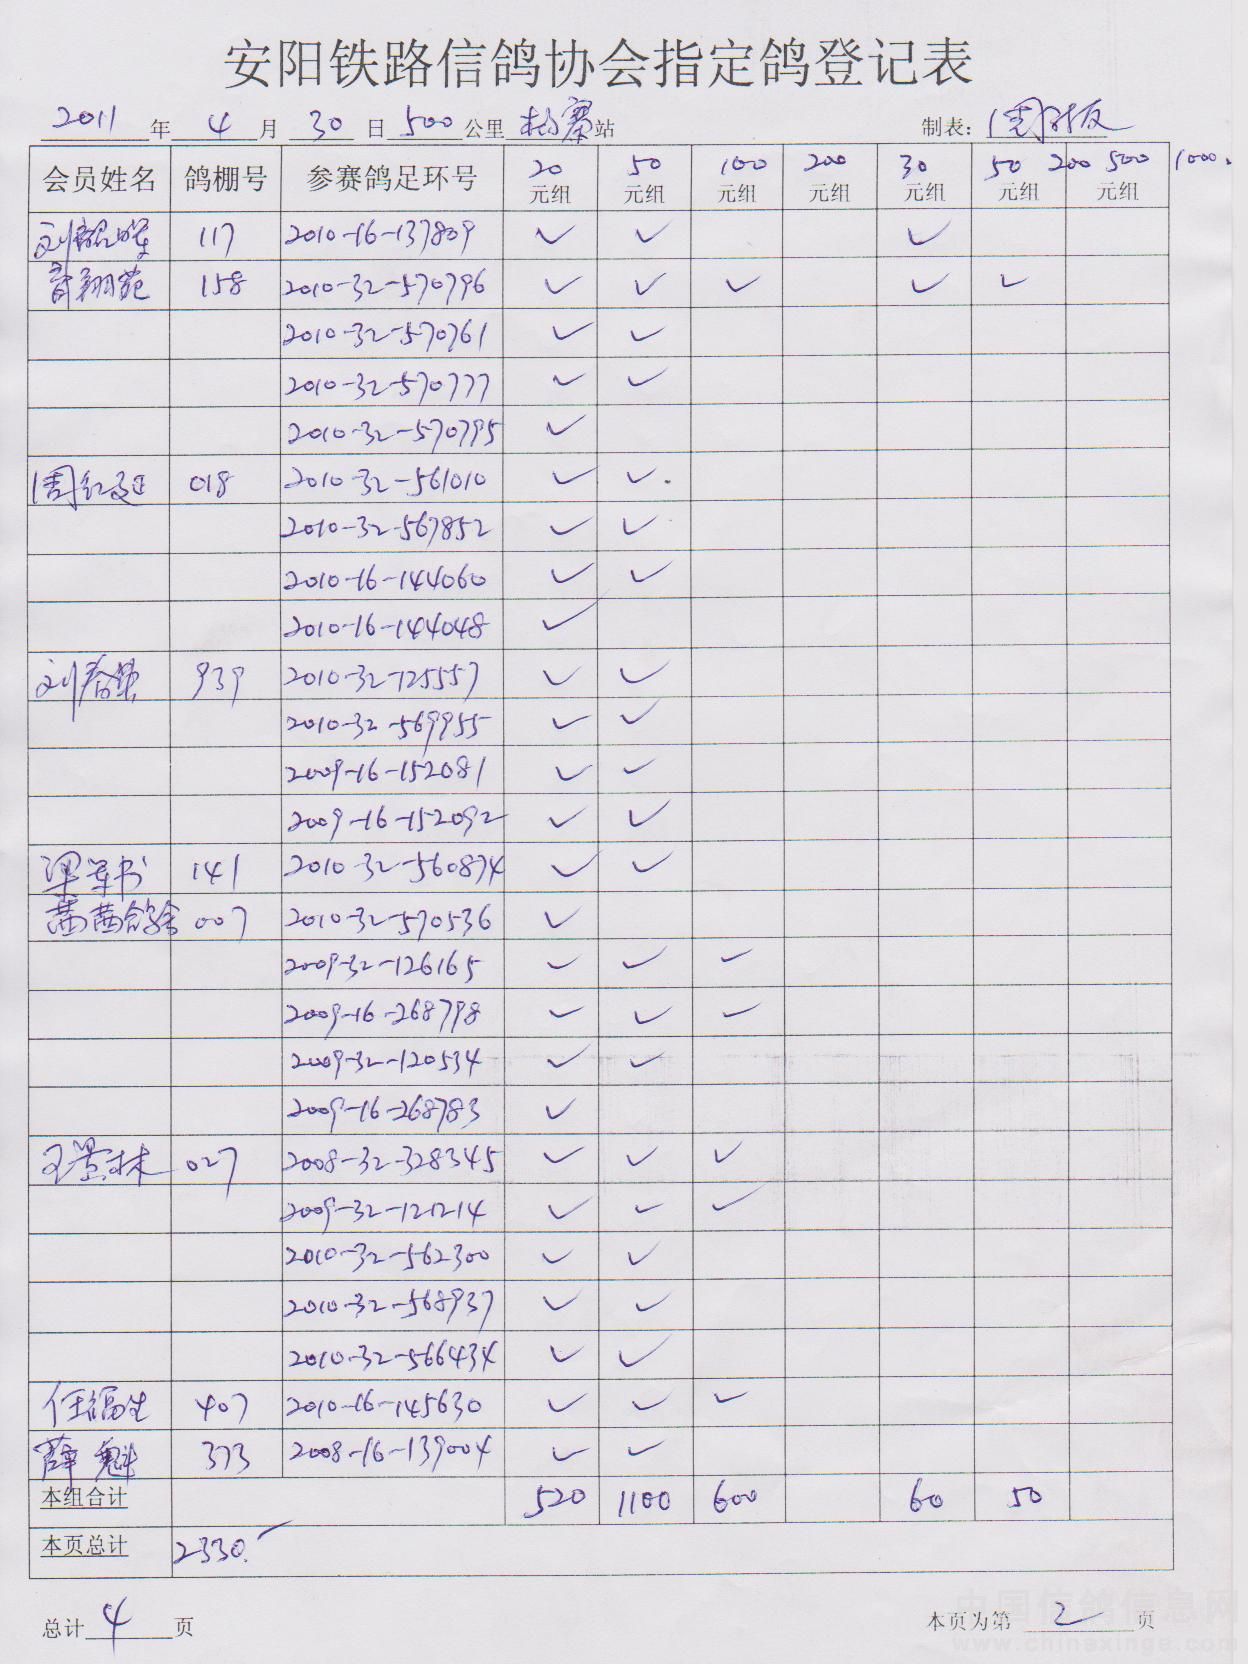 安阳铁路信鸽协会指定鸽登记表
2011年4月30日500公里 站 制表:
会员姓名 鸽棚号 参赛鸽足环号 20元组 50元组 100元组 200元组 30元组 50元组 200 500元组 1000.
117 2010-16-137809 ✓ ✓ ✓
翔苑 158 2010-32-570796 ✓ ✓ ✓ ✓ ✓
2010-32-570761 ✓ ✓
2010-32-570777 ✓ ✓
2010-32-570795 ✓
018 2010-32-561010 ✓ ✓
2010-32-567852 ✓ ✓
2010-16-144060 ✓ ✓
2010-16-144048 ✓
刘春 939 2010-32-125557 ✓ ✓
2010-32-569955 ✓ ✓
2009-16-152081 ✓ ✓
2009-16-152092 ✓ ✓
梁军书 141 2010-32-560874 ✓ ✓
茜茜鸽舍 007 2010-32-570536 ✓
2009-32-126165 ✓ ✓ ✓
2009-16-268798 ✓ ✓ ✓
2009-32-120534 ✓ ✓
2009-16-268783 ✓
王景林 027 2008-32-328345 ✓ ✓ ✓
2009-32-121214 ✓ ✓ ✓
2010-32-562300 ✓ ✓
2010-32-568937 ✓ ✓
2010-32-566434 ✓ ✓
任福生 407 2010-16-145630 ✓ ✓ ✓
薛魁 373 2008-16-139004 ✓ ✓
本组合计 520 1100 600 60 50
本页总计 2330.
总计4页 本页为第2页
中国信鸽信息网
www.chinaxinge.com